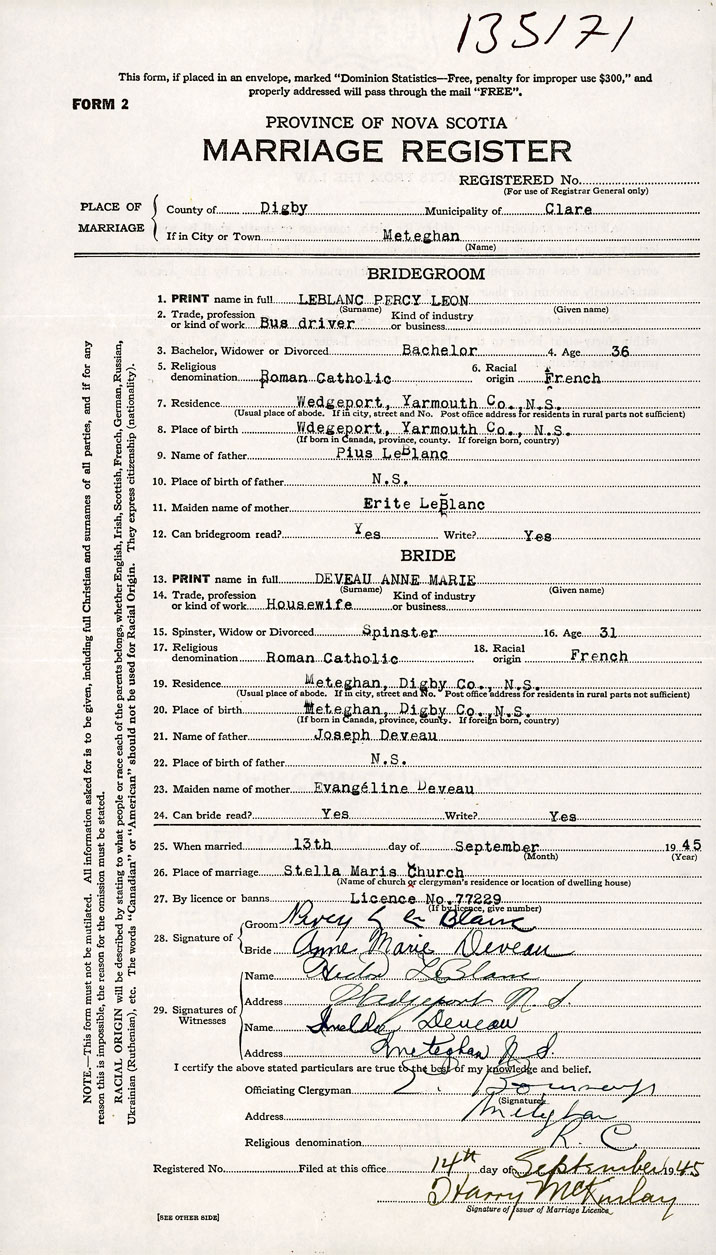 135171
This form, if placed in an envelope, marked "Dominion Statistics—Free, penalty for improper use $300," and
properly addressed will pass through the mail "FREE".
FORM 2
PROVINCE OF NOVA SCOTIA
MARRIAGE REGISTER
REGISTERED No.
(For use of Registrar General only)
PLACE OF MARRIAGE
County of Digby Municipality of Clare
If in City or Town Meteghan
(Name)
BRIDEGROOM
1. PRINT name in full LEBLANC PERCY LEON
(Surname) (Given name)
2. Trade, profession or kind of work Bus driver Kind of industry or business
3. Bachelor, Widower or Divorced Bachelor 4. Age 36
5. Religious denomination Roman Catholic 6. Racial origin French
7. Residence Wedgeport, Yarmouth Co., N.S.
(Usual place of abode. If in city, street and No. Post office address for residents in rural parts not sufficient)
8. Place of birth Wdegeport, Yarmouth Co., N.S.
(If born in Canada, province, county. If foreign born, country)
9. Name of father Pius LeBlanc
10. Place of birth of father N.S.
11. Maiden name of mother Erite LeBlanc
12. Can bridegroom read? Yes Write? Yes
BRIDE
13. PRINT name in full DEVEAU ANNE MARIE
(Surname) (Given name)
14. Trade, profession or kind of work Housewife Kind of industry or business
15. Spinster, Widow or Divorced Spinster 16. Age 31
17. Religious denomination Roman Catholic 18. Racial origin French
19. Residence Meteghan, Digby Co., N.S.
(Usual place of abode. If in city, street and No. Post office address for residents in rural parts not sufficient)
20. Place of birth Meteghan, Digby Co., N.S.
(If born in Canada, province, county. If foreign born, country)
21. Name of father Joseph Deveau
22. Place of birth of father N.S.
23. Maiden name of mother Evangéline Deveau
24. Can bride read? Yes Write? Yes
25. When married 13th day of September 1945
(Month) (Year)
26. Place of marriage Stella Maris Church
(Name of church or clergyman's residence or location of dwelling house)
27. By licence or banns Licence No. 77229
(If by licence, give number)
28. Signature of
Groom Percy L Le Blanc
Bride Anne Marie Deveau
29. Signatures of Witnesses
Name LeBlanc
Address Wedgeport N. S.
Name Deveau
Address Meteghan N. S.
I certify the above stated particulars are true to the best of my knowledge and belief.
Officiating Clergyman
(Signature)
Address Meteghan
Religious denomination R. C.
Registered No. Filed at this office 14th day of September 1945
Harry McKinlay
Signature of Issuer of Marriage Licence
[SEE OTHER SIDE]
NOTE.—This form must not be mutilated. All information asked for is to be given, including full Christian and surnames of all parties, and if for any
reason this is impossible, the reason for the omission must be stated.
RACIAL ORIGIN will be described by stating to what people or race each of the parents belongs, whether English, Irish, Scottish, French, German, Russian,
Ukrainian (Ruthenian), etc. The words "Canadian" or "American" should not be used for Racial Origin. They express citizenship (nationality).